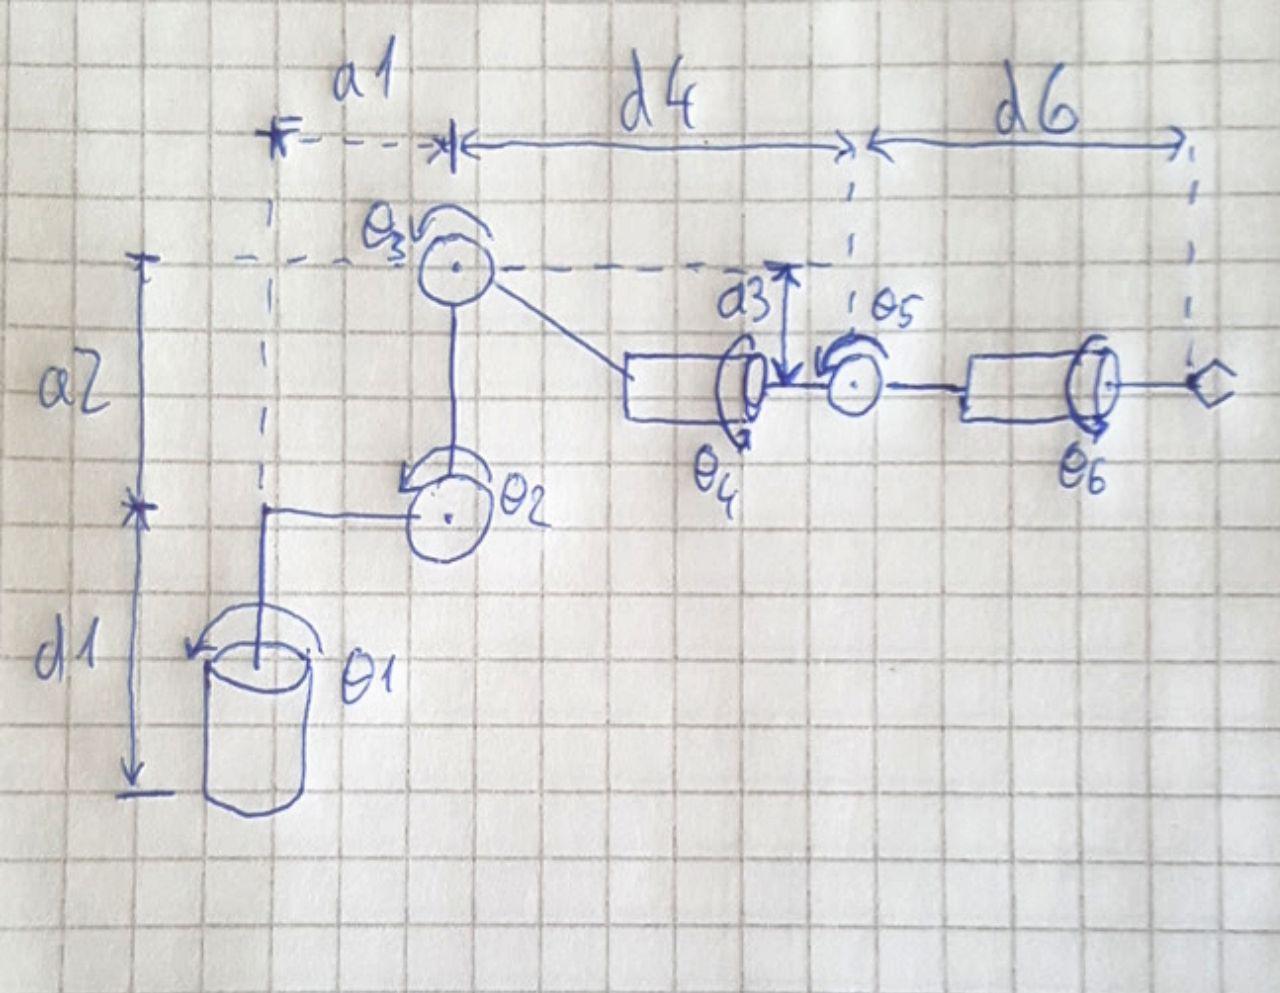 a1
d4
d6
θ3
a3
θ5
a2
θ4
θ6
θ2
d1
θ1